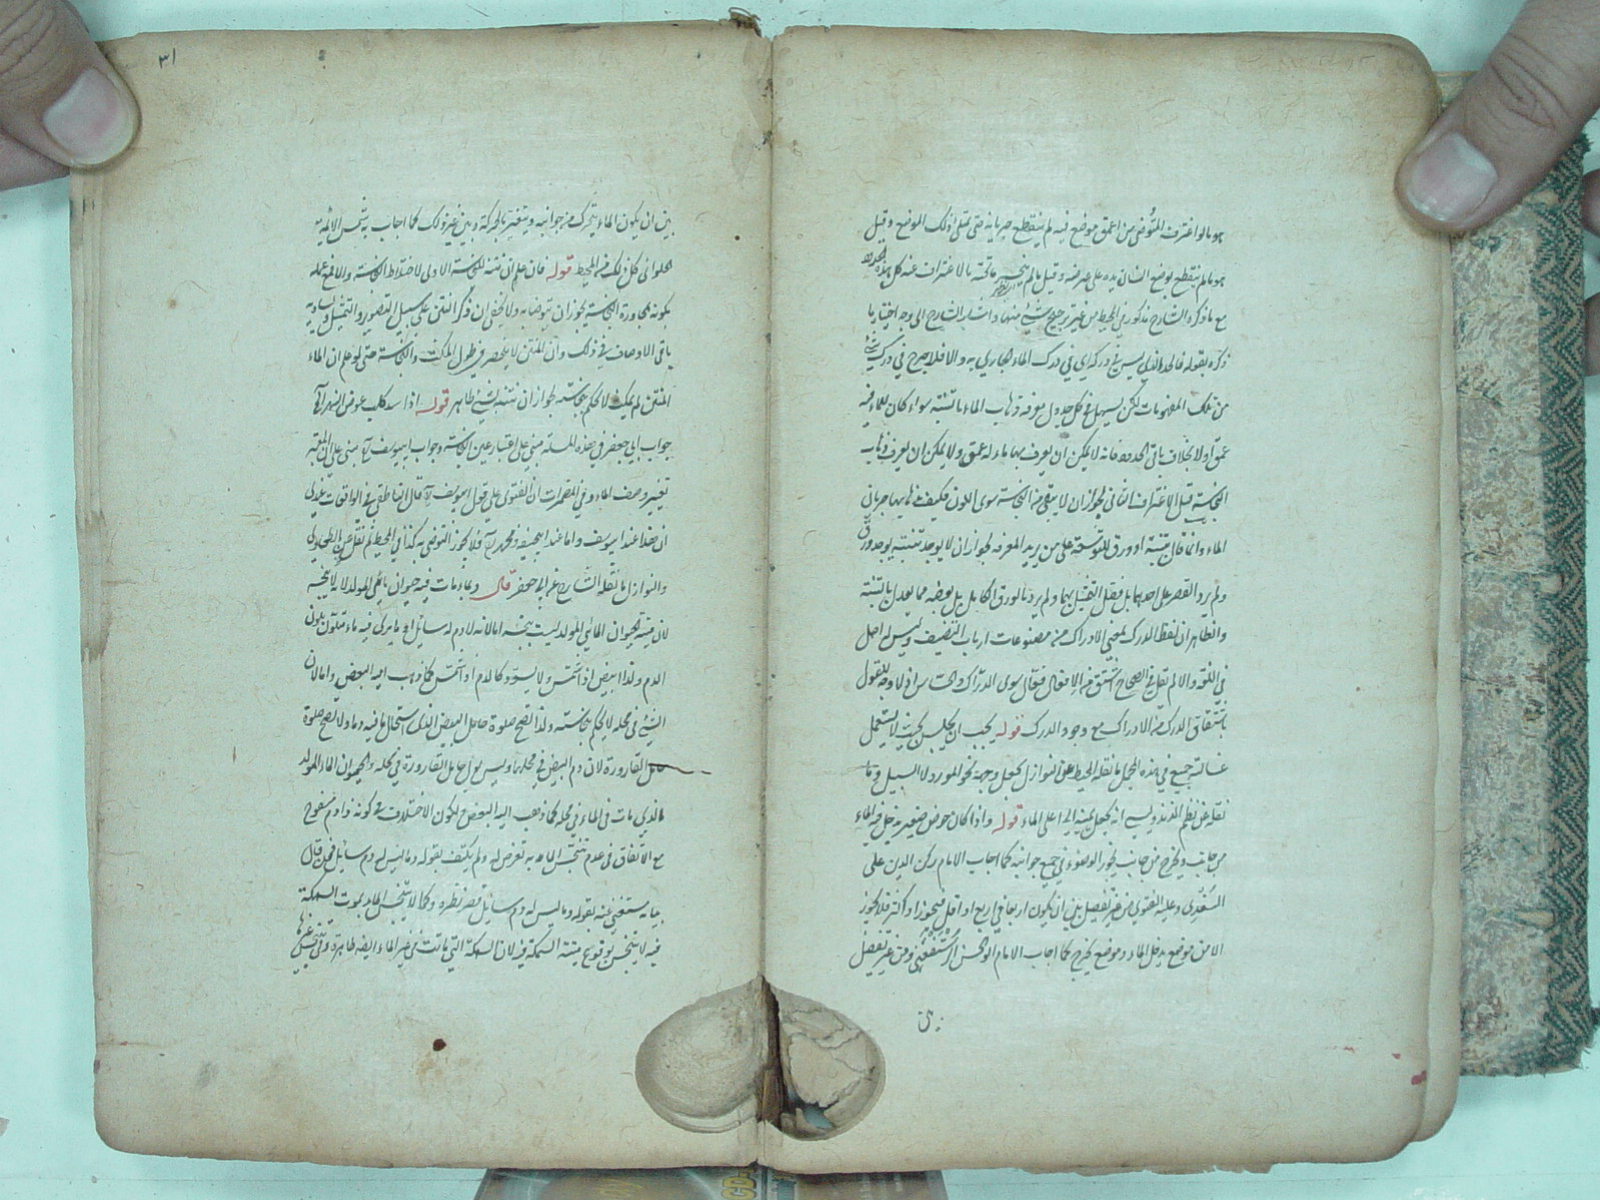 هو ما لو اغترف المتوضي من اعمق موضع فيه لم ينقطع جريانه حتى يمتلى ذلك الموضع وقيل
هو ما لم ينقطع بوضع انسان يده على عرضه وقيل ما لم ينحسر ما تحته بالاغتراف عنه كل هذه الحدود
مع ما ذكره الشارح مذكور في المحيط من غير ترجيح شيئ منها واشار الشارح الى وجه اختيار ما
ذكره بقوله فالحد الذي ليس في دركه اي في درك الماء الجاري به والا فلا حرج في درك شيئ
من تلك المفهومات لكن يسهل في كل جدول معرفة ذهاب الماء بالتبنة سواء كان للماء فيه
عمق او لا بخلاف باقي الحدود فانه لا يمكن ان يعرف بها ماء له عمق ولا يمكن ان يعرف ذهاب
النجاسة قبل الاغتراف الثاني لجواز ان لا يبقى من النجاسة سوى اللون فكيف يعرف بها جريان
الماء وانما قال بتبنة او ورق للتوسعة على من يريد المعرفة لجواز ان لا يوجد تبنة يوجد ورق
ولم يرد القصر على احدهما بل فصل التمثيل بهما ولم يرد بالورق الكامل بل بعضه مما يعدل بالتبنة
والظاهر ان لفظ الدرك بمعنى الادراك من مصنوعات ارباب التصنيف وليس له اصل
في اللغة والا لم يقل في الصحاح اشتق من الافعال فعال سوى الدراك والحساس اذ لا وجه للقول
باشتقاق الدراك من الادراك مع وجود الدرك قوله يجب ان يجلس بحيث لا يستعمل
غسالته جمع في هذه الجمل ما نقله المحيط عن النوازل يجعل وجهه نحو المورد لا المسيل وما
نقله عن نظم الزندويسي انه يجعل يمينه الى اعلى الماء قوله واذا كان حوض صغير يدخل فيه الماء
من جانب ويخرج من جانب يجوز الوضوء في جميع جوانبه كما اجاب الامام ركن الدين علي
السغدي وعليه الفتوى من غير تفصيل بين ان يكون اربعا في اربع او اقل فيجوز او اكثر فلا يجوز
الا من موضع يدخل الماء وموضع يخرج كما اجاب الامام ابو الحسن الرستغفني ومن غير تفصيل
بين
٣١
بين ان يكون الماء يتحرك من جوانبه ويتغير بالحركة وبين غير ذلك كما اجاب به شمس الائمة
الحلواني كل ذلك في المحيط قوله فان علم ان نتنه للنجاسة الاولى لاختلاط النجاسة والا لمع علمه
بكونه مجاورة النجاسة يجوز ان يتوضا به ولا يخفى ان ذكر النتن على سبيل التصوير والتمثيل ويساويه
باقي الاوصاف في ذلك وان النتن لا ينحصر في طول المكث والنجاسة حتى لو علم ان الماء
المنتن لم يمكث لا يحكم بنجاسته لجواز ان نتنه بشيئ طاهر قوله اذا سد كلب عرض النهر الخ
جواب ابي جعفر في هذه المسئلة مبني على اعتبار عين النجاسة وجواب ابي يوسف رح مبني على ان المعتبر
تغيير وصف الماء وفي المضمرات ان الفتوى على قول ابي يوسف رح قال الناطفي في الواقعات عندي
ان هذا عند ابي يوسف واما عند ابي حنيفة ومحمد رح فلا يجوز التوضي به كذا في المحيط ثم نقل عن الطحاوي
والنوازل ما نقله الشارح عن ابي جعفر قال وبماء مات فيه حيوان مائي المولد لانه لا ينجسه
لان ميتة الحيوان المائي المولد ليست بنجسة اما لانه لا دم له سائل او ما يرى فيه ماء متلون بلون
الدم ولذا ابيض اذا شمس ولا يسود كالدم اذا شمس كما ذهب اليه البعض واما لان
الشيئ في محله لا يحكم بنجاسته ولذا تصح صلوة حامل البيض الذي استحال ما فيه دما ولا تصح صلوة
حامل القارورة لان دم البيض في محله وليس بول حامل القارورة في محله والحيوان الماء المولد
الذي مات في الماء في محله كما ذهب اليه البعض ولكون الاختلاف في كونه ذا دم مسفوح
مع الاتفاق في عدم تنجس الماء به تعرض له ولم يكتف بقوله وما ليس له دم سائل فمن قال
بانه مستغنى عنه بقوله وما ليس له دم سائل قصر نظره وكما لا يتنجس الماء بموت السمكة
فيه لا يتنجس بوقوع ميتة السمكة فيه لان السمكة التي ماتت في غير الماء ايضا طاهرة